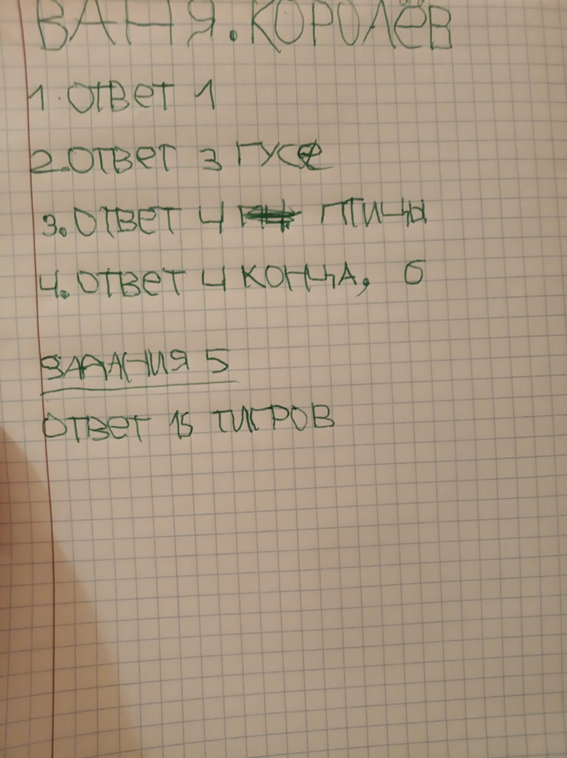 ВАНЯ. КОРОЛЁВ
1. ОТВЕТ 1
2. ОТВЕТ 3 ГУСЯ
3. ОТВЕТ 4 ПТИЦЫ
4. ОТВЕТ 4 КОНЦА, 6
ЗАДАНИЯ 5
ОТВЕТ 15 ТИГРОВ